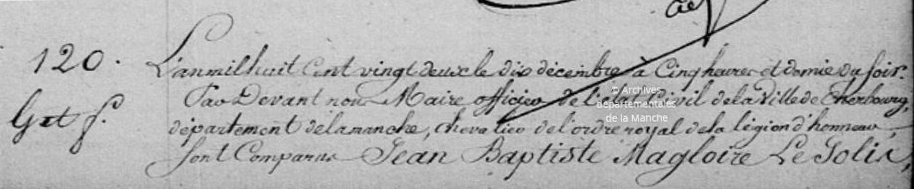 120. L'an mil huit Cent vingt deux le dix décembre à Cinq heures et demie du soir.
Par Devant nous Maire officier de l' civil de la Ville de Cherbourg,
département de la manche, chevalier de l'ordre royal de la légion d'honneur,
sont Comparus Jean Baptiste Magloire Le Jolis,
© Archives
départementales
de la Manche